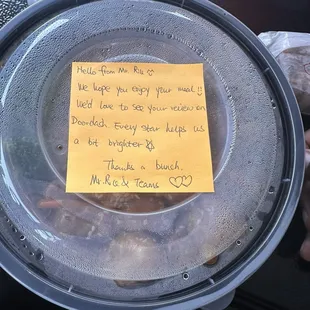 Hello from Mr. Rice
We hope you enjoy your meal!
We'd love to see your review on
Doordash. Every star helps us
a bit brighter
Thanks a bunch,
Mr. Rice & Teams